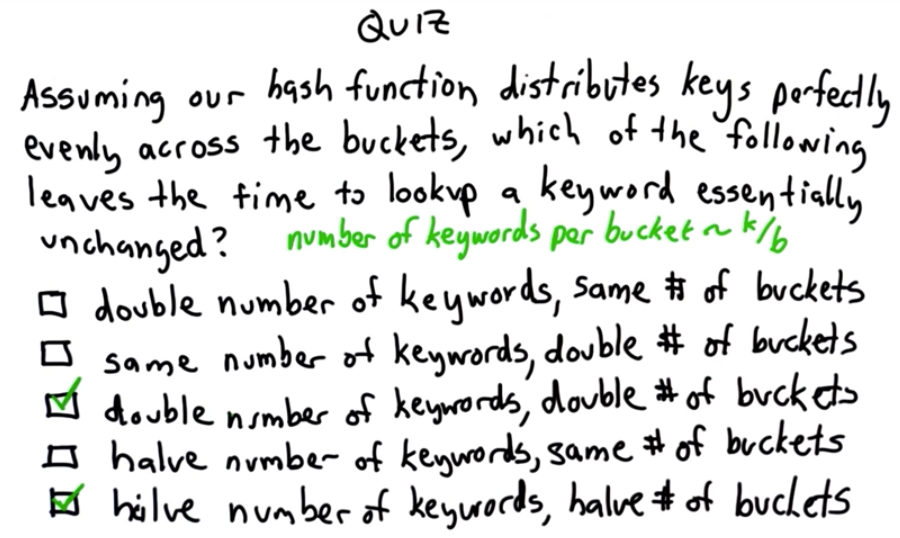 QUIZ
Assuming our hash function distributes keys perfectly
evenly across the buckets, which of the following
leaves the time to lookup a keyword essentially
unchanged? number of keywords per bucket ~ k/b
double number of keywords, same # of buckets
same number of keywords, double # of buckets
double number of keywords, double # of buckets
halve number of keywords, same # of buckets
halve number of keywords, halve # of buckets